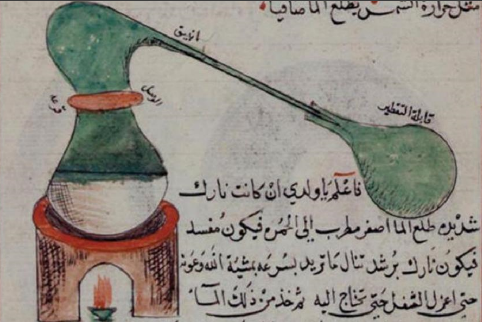 مثل حرارة الشمس يطلع الما صافيا
انبيق
قابلة التقطير
قرعه
فاعلم يا ولدي ان كانت نارك
شديده طلع الما اصفر مطرب الى الحمره فيكون مفسد
فيكون نارك برشد تنال ما تريد بسرعه بمشيئة الله وعونه
حتى اعزل الثفل حتى يحتاج اليه ثم خذ من ذلك المآء